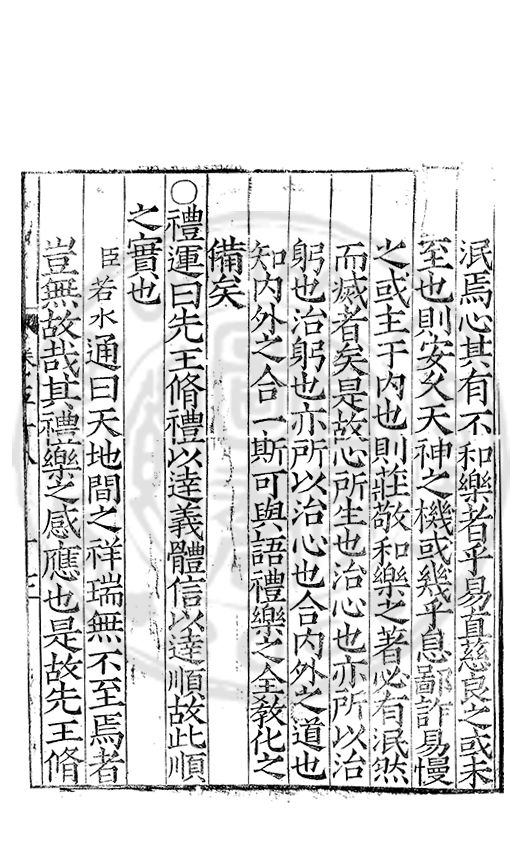 泯焉心其有不和樂者乎易直慈良之或未
至也則安久天神之機或幾乎息鄙詐易慢
之或主于內也則莊敬和樂之著必有泯然
而滅者矣是故心所生也治心也亦所以治
躬也治躬也亦所以治心也合內外之道也
知內外之合一斯可與語禮樂之全教化之
備矣
○禮運曰先王脩禮以達義體信以達順故此順
之實也
臣若水通曰天地間之祥瑞無不至焉者
豈無故哉其禮樂之感應也是故先王脩
卷五十八